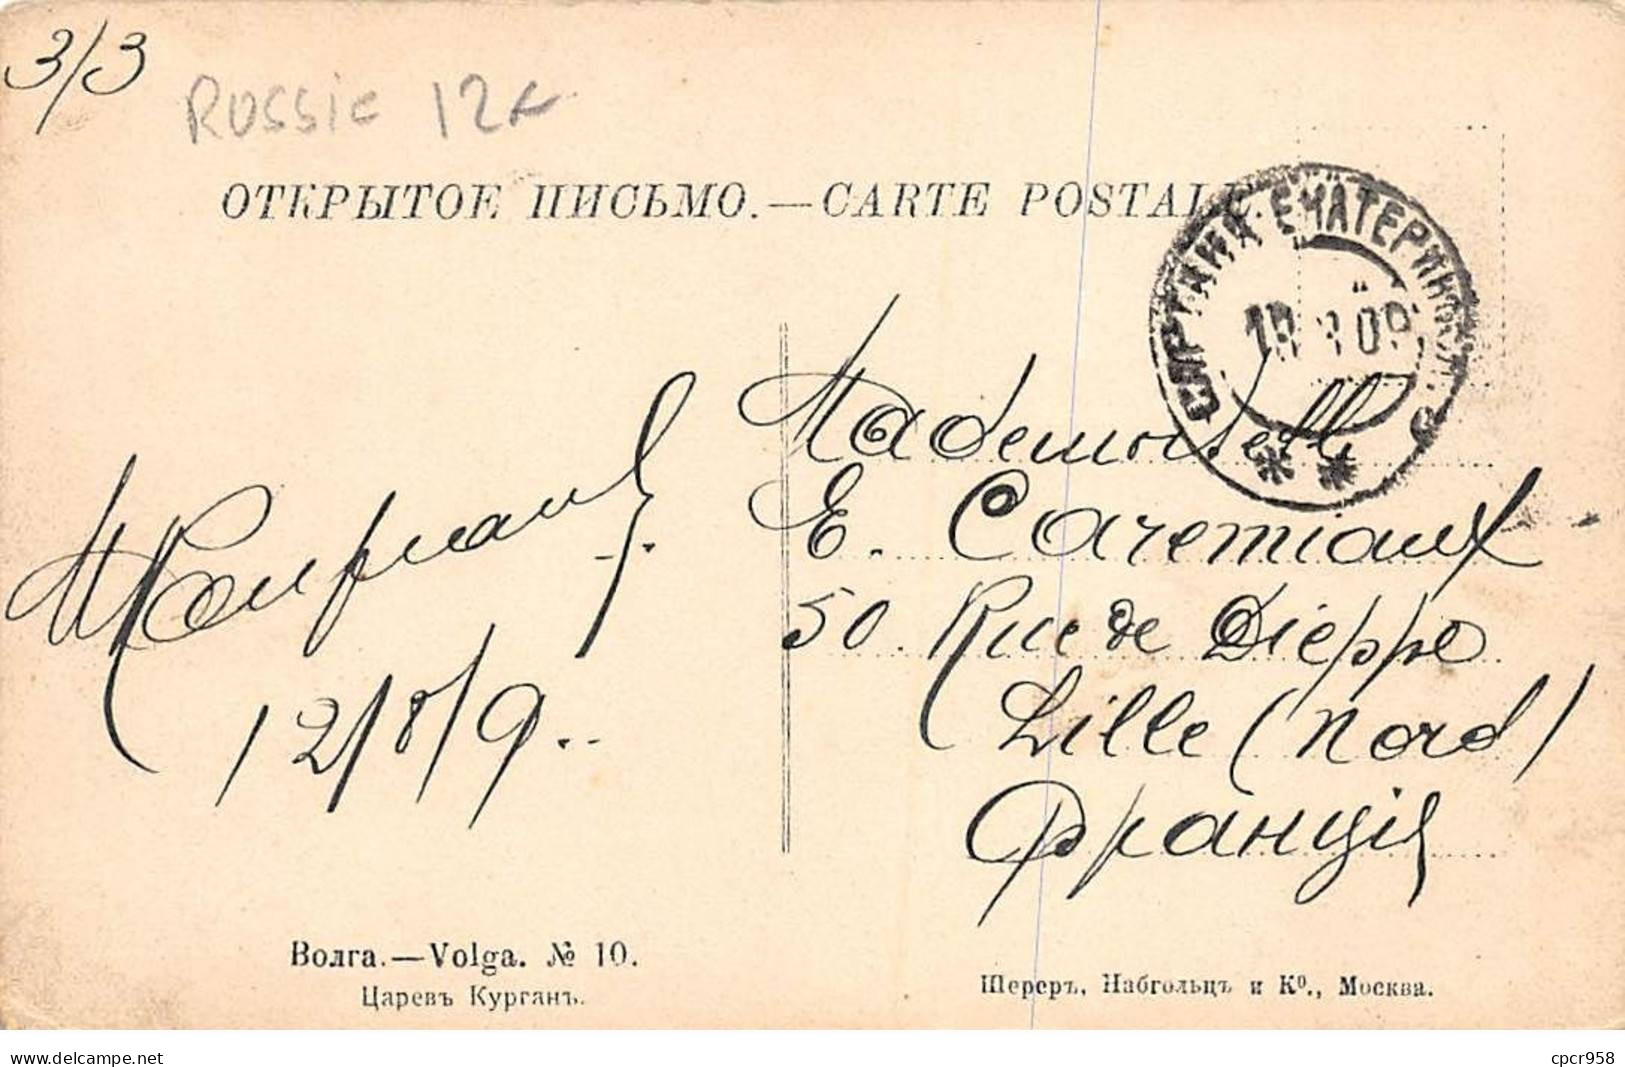 3/3
RUSSIE 12
ОТКРЫТОЕ ПИСЬМО.—CARTE POSTALE.
ЕКАТЕРИН
Mademoiselle
E. Caremiaux
50. Rue de Dieppe
Lille (Nord)
Франція
12/8/9..
Волга.—Volga. № 10.
Царевъ Курганъ.
Шереръ, Набгольцъ и К⁰., Москва.
www.delcampe.net
cpcr958